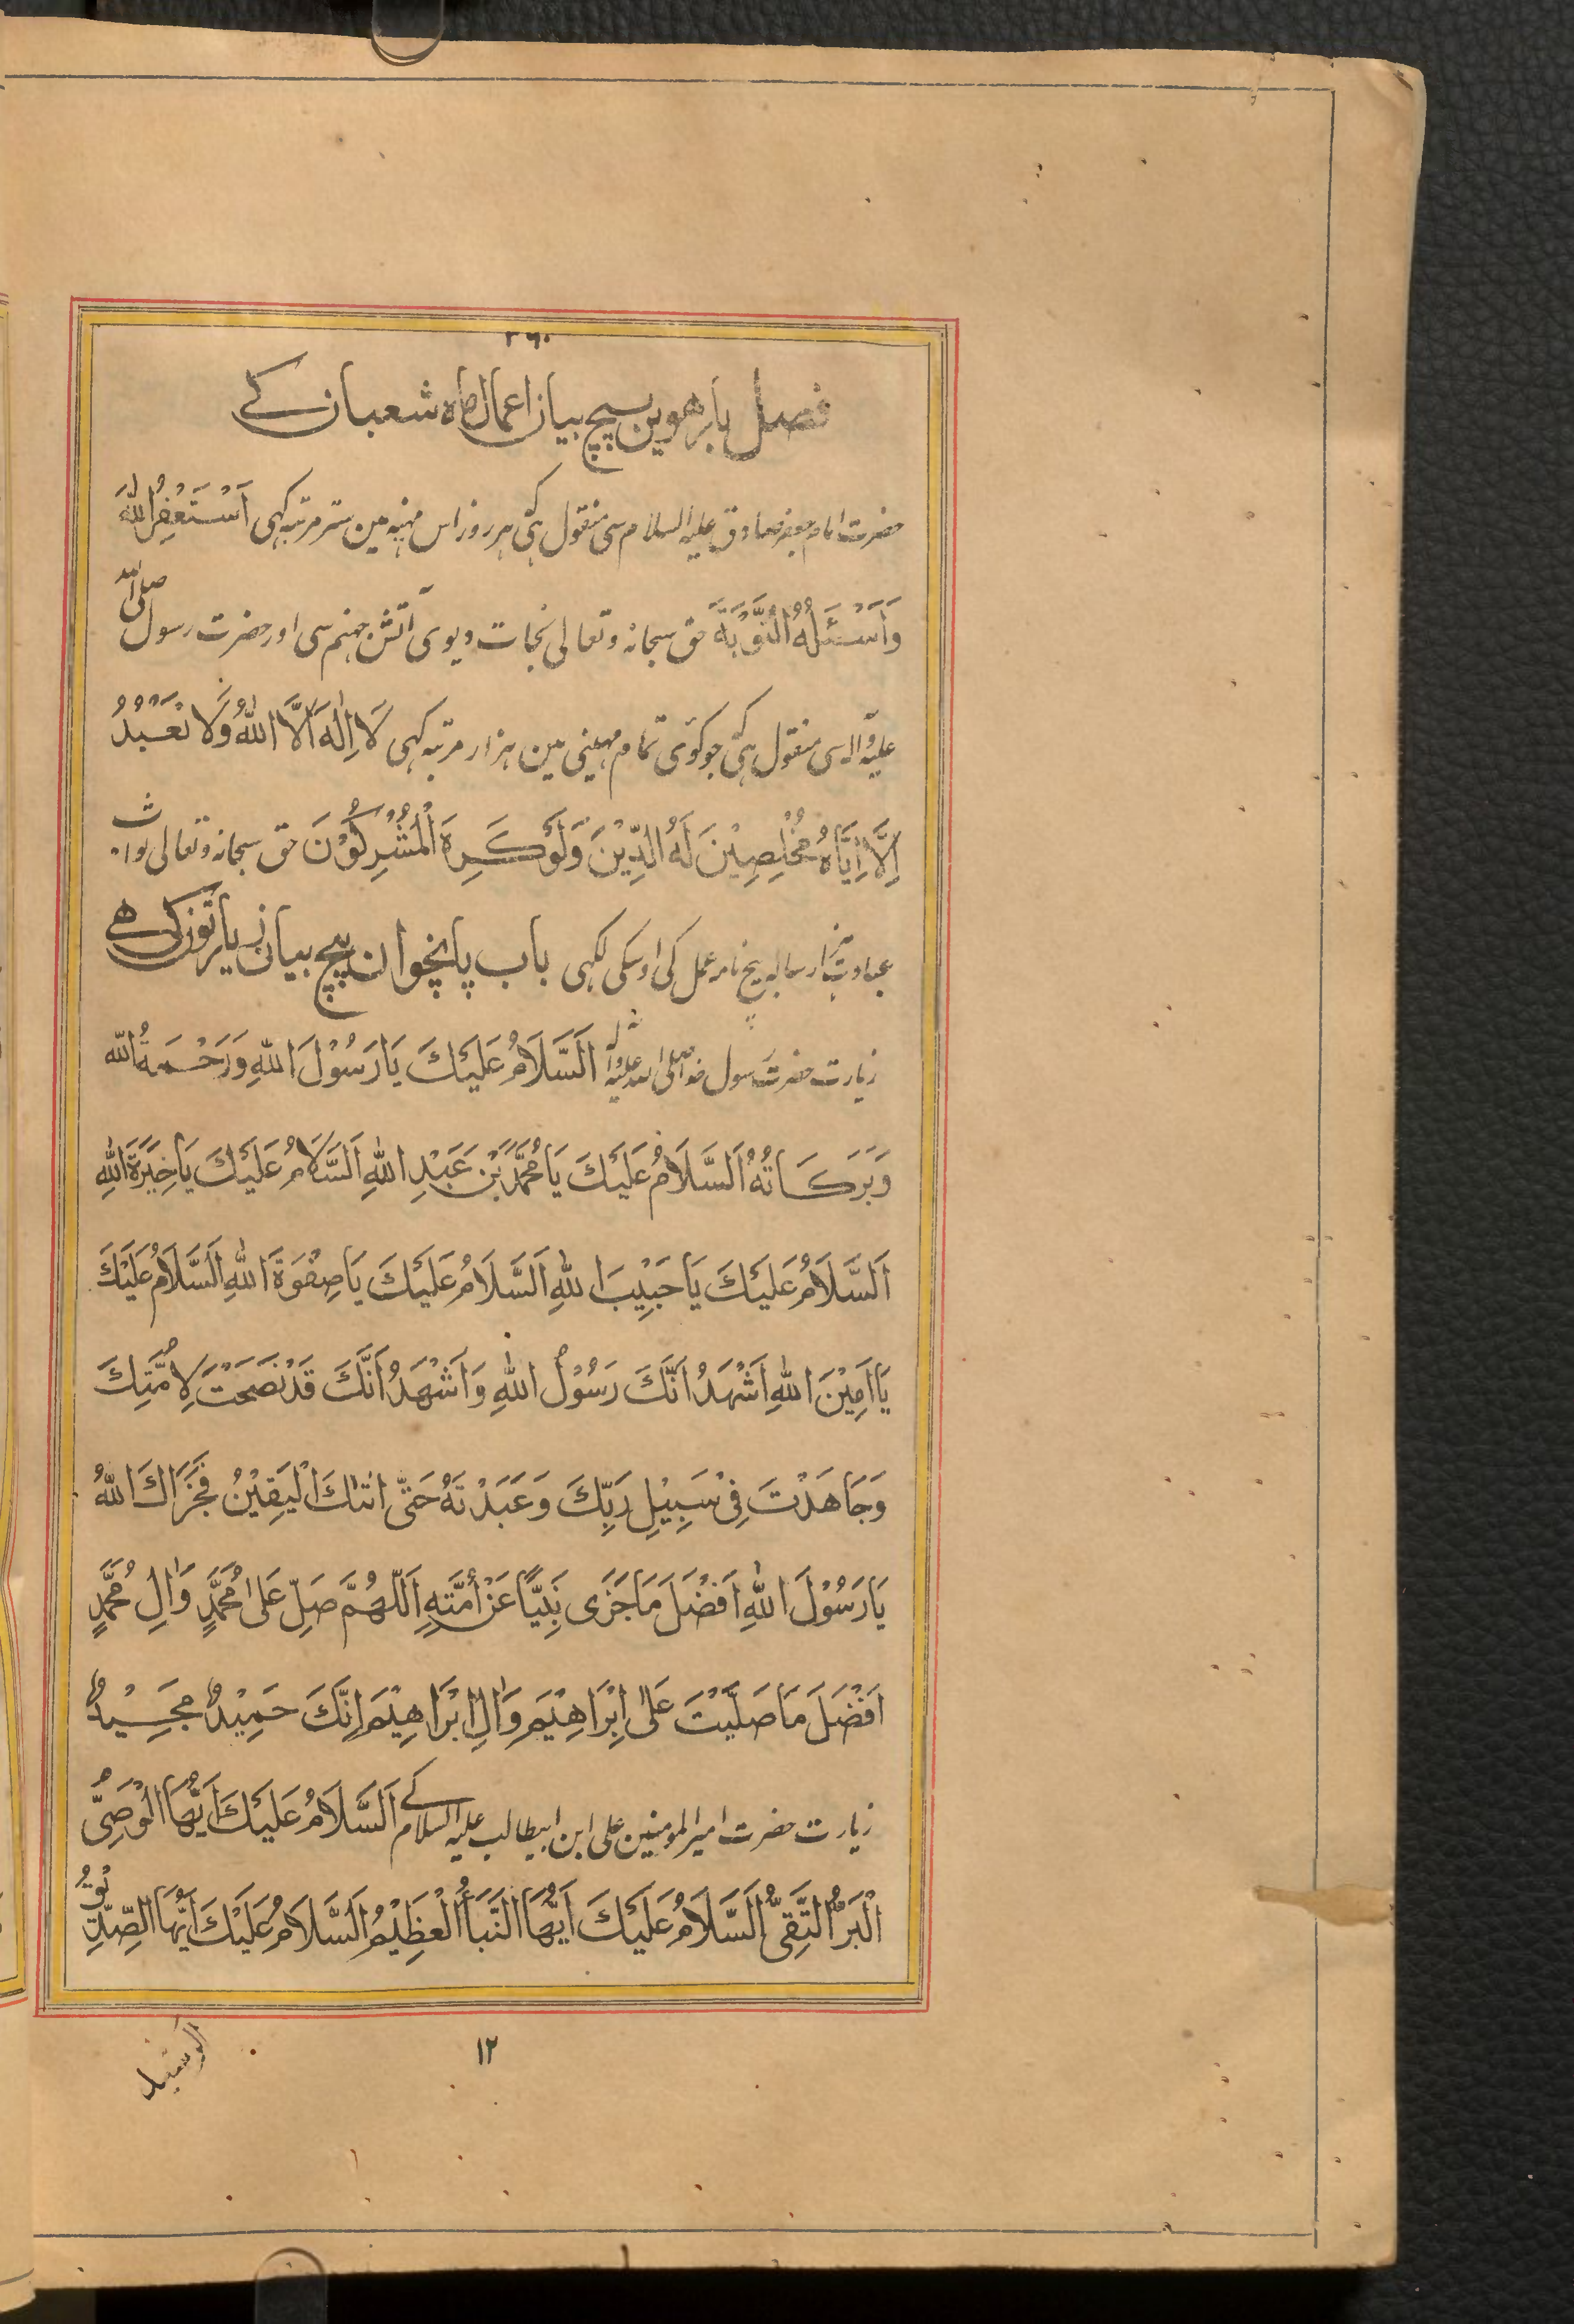 ٢٦٠
فصل بارهوین بیچ بیان اعمال ماه شعبان کے
حضرت امام جعفر صادق علیه السلام سی منقول ہی کہ ہر روز اس مہینہ مین ستر مرتبہ کہی اَسْتَغْفِرُ اللّٰهَ
وَاَسْئَلُهُ التَّوْبَةَ حق سبحانہ و تعالی نجات دیوی آتش جہنم سی اور حضرت رسول صلی الله
علیہ و آلہ سی منقول ہی کہ جو کوئی تمام مہینی مین ہزار مرتبہ کہی لَا اِلٰهَ اِلَّا اللّٰهُ وَلَا نَعْبُدُ
اِلَّا اِيَّاهُ مُخْلِصِيْنَ لَهُ الدِّيْنَ وَلَوْ كَرِهَ الْمُشْرِكُوْنَ حق سبحانہ و تعالی ثواب
عبادت ہزار سالہ بیچ نامہ عمل کی اوسکی لکہی باب پانچوان بیچ بیان زیارتون کی هے
زیارت حضرت رسول خدا صلی الله علیه و آله اَلسَّلَامُ عَلَيْكَ يَا رَسُوْلَ اللّٰهِ وَرَحْمَةُ اللّٰه
وَبَرَكَاتُهُ اَلسَّلَامُ عَلَيْكَ يَا مُحَمَّدَ بْنَ عَبْدِ اللّٰهِ اَلسَّلَامُ عَلَيْكَ يَا خِيَرَةَ اللّٰهِ
اَلسَّلَامُ عَلَيْكَ يَا حَبِيْبَ اللّٰهِ اَلسَّلَامُ عَلَيْكَ يَا صِفْوَةَ اللّٰهِ اَلسَّلَامُ عَلَيْكَ
يَا اَمِيْنَ اللّٰهِ اَشْهَدُ اَنَّكَ رَسُوْلُ اللّٰهِ وَاَشْهَدُ اَنَّكَ قَدْ نَصَحْتَ لِاُمَّتِكَ
وَجَاهَدْتَ فِيْ سَبِيْلِ رَبِّكَ وَعَبَدْتَهُ حَتّٰى اَتٰكَ الْيَقِيْنُ فَجَزَاكَ اللّٰهُ
يَا رَسُوْلَ اللّٰهِ اَفْضَلَ مَا جَزٰى نَبِيًّا عَنْ اُمَّتِهِ اَللّٰهُمَّ صَلِّ عَلٰى مُحَمَّدٍ وَاٰلِ مُحَمَّدٍ
اَفْضَلَ مَا صَلَّيْتَ عَلٰى اِبْرَاهِيْمَ وَاٰلِ اِبْرَاهِيْمَ اِنَّكَ حَمِيْدٌ مَجِيْدٌ
زیارت حضرت امیر المومنین علی ابن ابیطالب علیه السلام کے اَلسَّلَامُ عَلَيْكَ اَيُّهَا الْوَصِيُّ
الْبَرُّ التَّقِيُّ اَلسَّلَامُ عَلَيْكَ اَيُّهَا النَّبَأُ الْعَظِيْمُ اَلسَّلَامُ عَلَيْكَ اَيُّهَا الصِّدِّيْقُ
الرشید
١٢